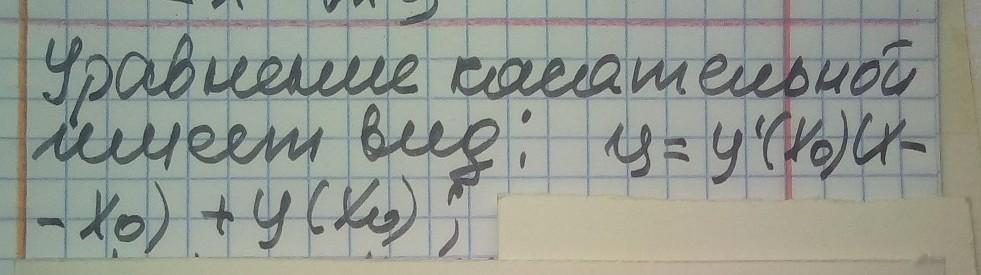 Уравнение касательной
имеет вид: y = y'(x₀)(x-
-x₀) + y(x₀);